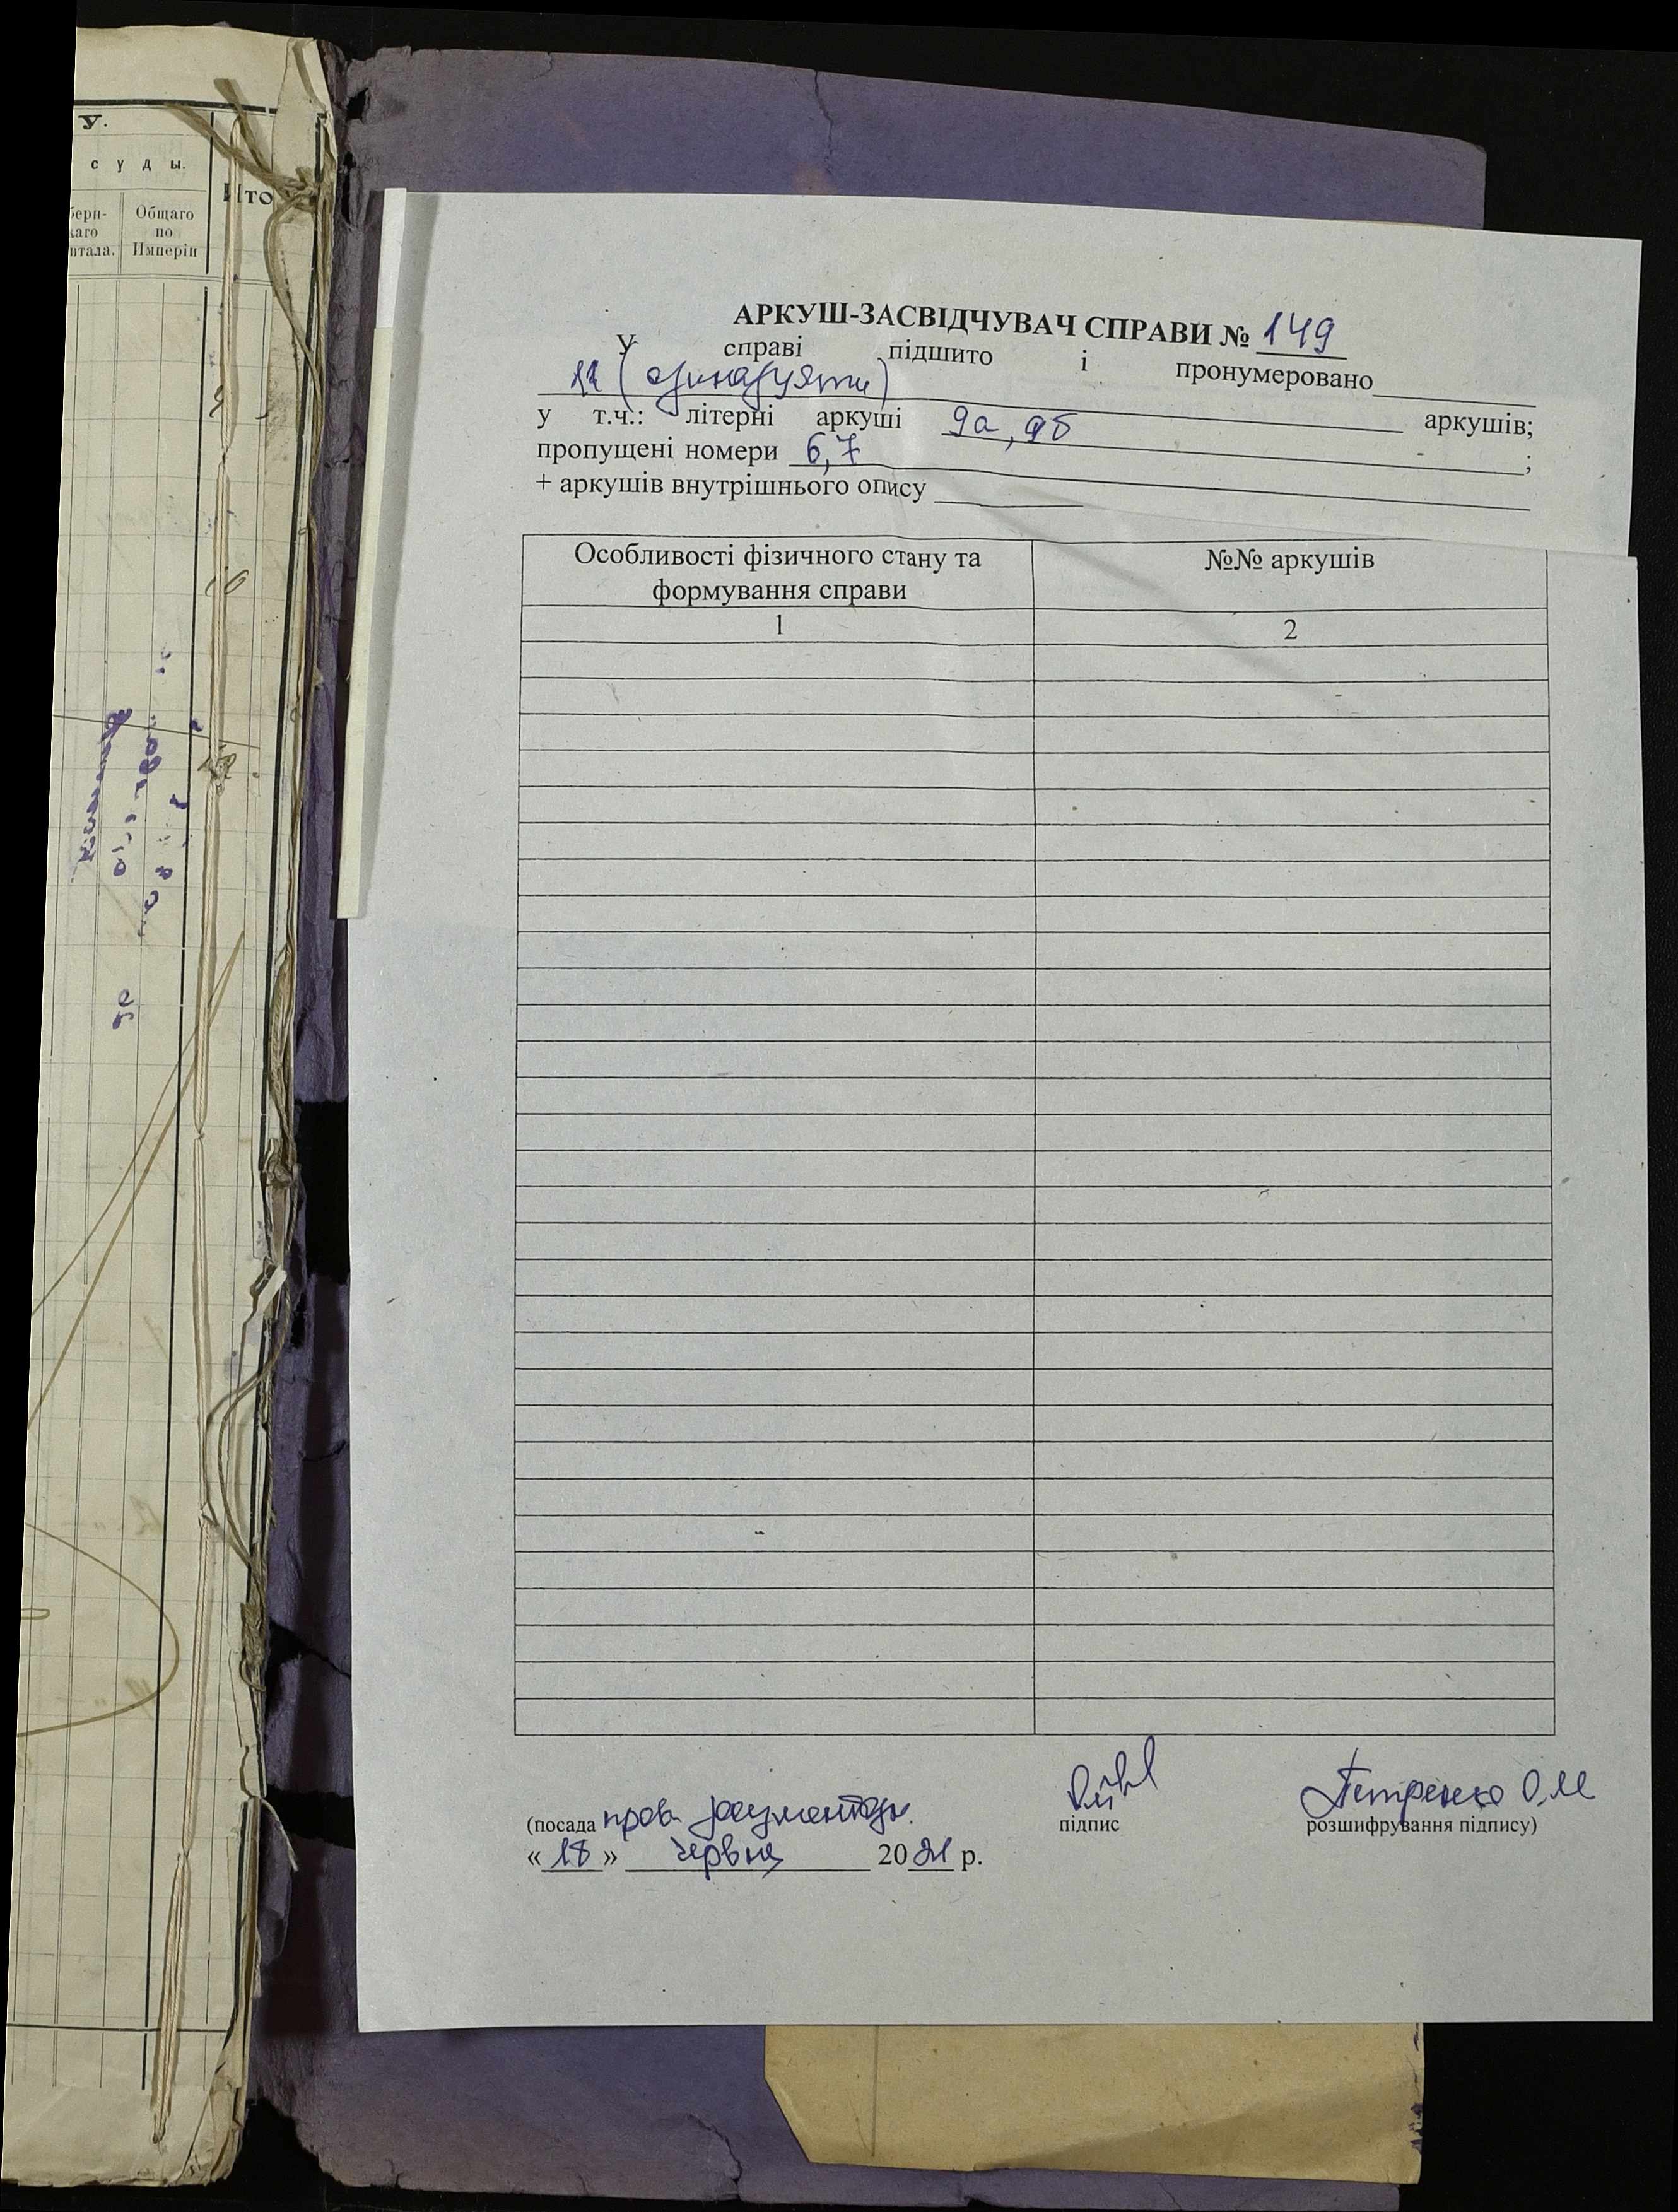 У.
с у д ы.
Ито
берн-
каго
итала.
Общаго
по
Имперіи
АРКУШ-ЗАСВІДЧУВАЧ СПРАВИ № 149
У справі підшито і пронумеровано
11 (одинадцяти) аркушів;
у т.ч.: літерні аркуші 9а, 9б
пропущені номери 6,7 ;
+ аркушів внутрішнього опису
Особливості фізичного стану та
формування справи
№№ аркушів
1 2
(посада пров. підпис Петренко О.М
розшифрування підпису)
«18» червня 2021 р.